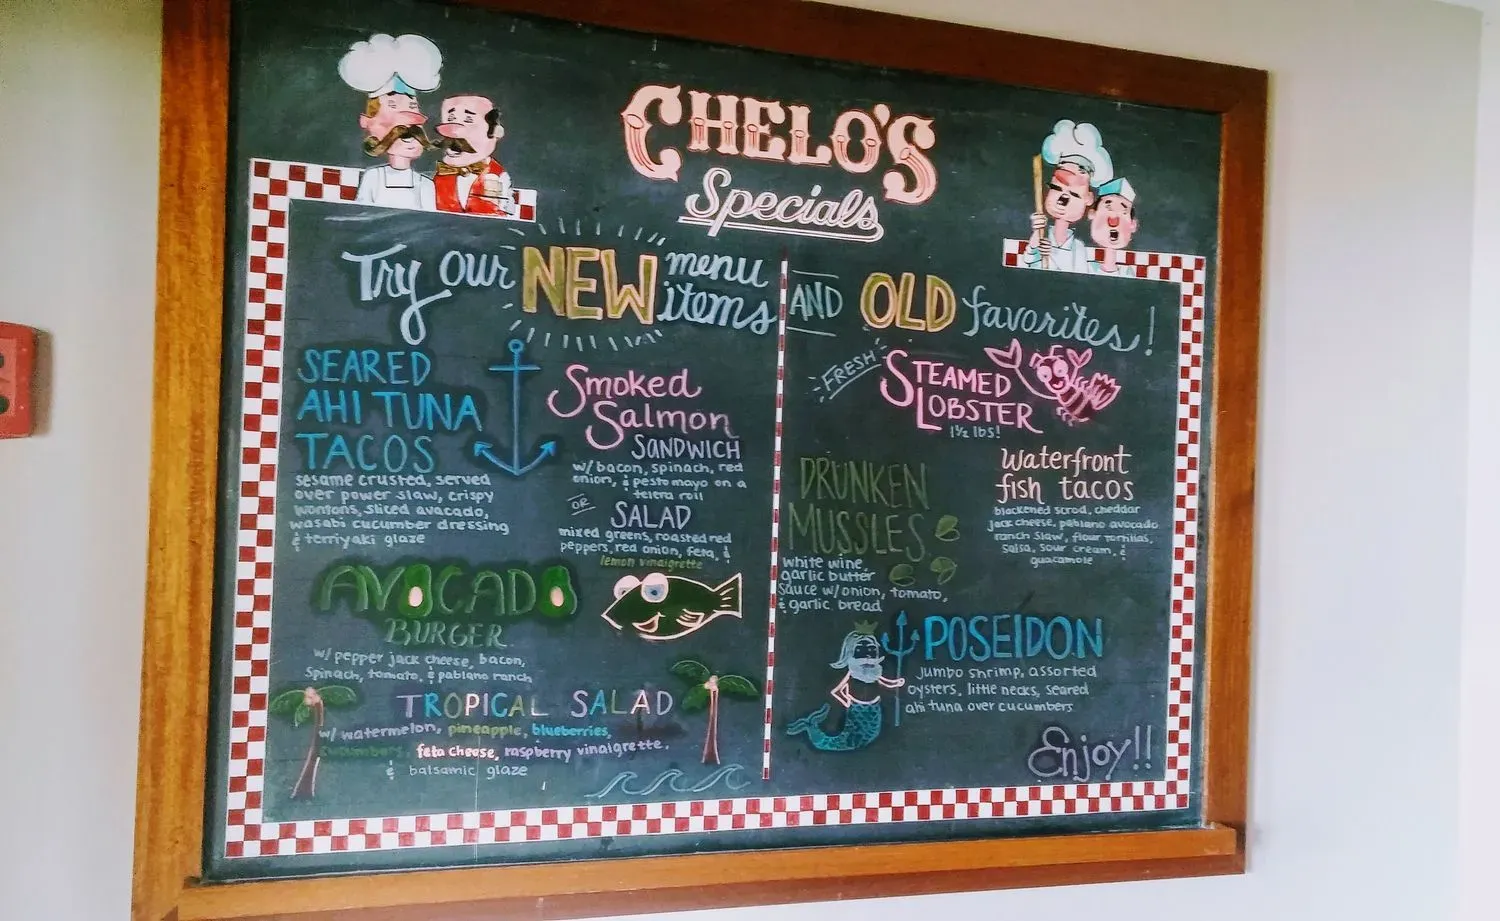 CHELO'S
Specials
Try our NEW menu items
SEARED
AHI TUNA
TACOS
sesame crusted, served
over power slaw, crispy
wontons, sliced avacado,
wasabi cucumber dressing
& terriyaki glaze
Smoked
Salmon
SANDWICH
w/ bacon, spinach, red
onion, & pesto mayo on a
telera roll
OR
SALAD
mixed greens, roasted red
peppers, red onion, feta, &
lemon vinaigrette
AVOCADO
BURGER
w/ pepper jack cheese, bacon,
spinach, tomato, & pablano ranch
TROPICAL SALAD
w/ watermelon, pineapple, blueberries,
cucumbers, feta cheese, raspberry vinaigrette,
& balsamic glaze
AND OLD favorites!
FRESH
STEAMED
LOBSTER
1½ lbs!
DRUNKEN
MUSSLES
white wine,
garlic butter
sauce w/ onion, tomato,
& garlic bread
waterfront
fish tacos
blackened scrod, cheddar
jack cheese, pablano avocado
ranch slaw, flour tortillas,
salsa, sour cream, &
guacamole
POSEIDON
jumbo shrimp, assorted
oysters, little necks, seared
ahi tuna over cucumbers
Enjoy!!